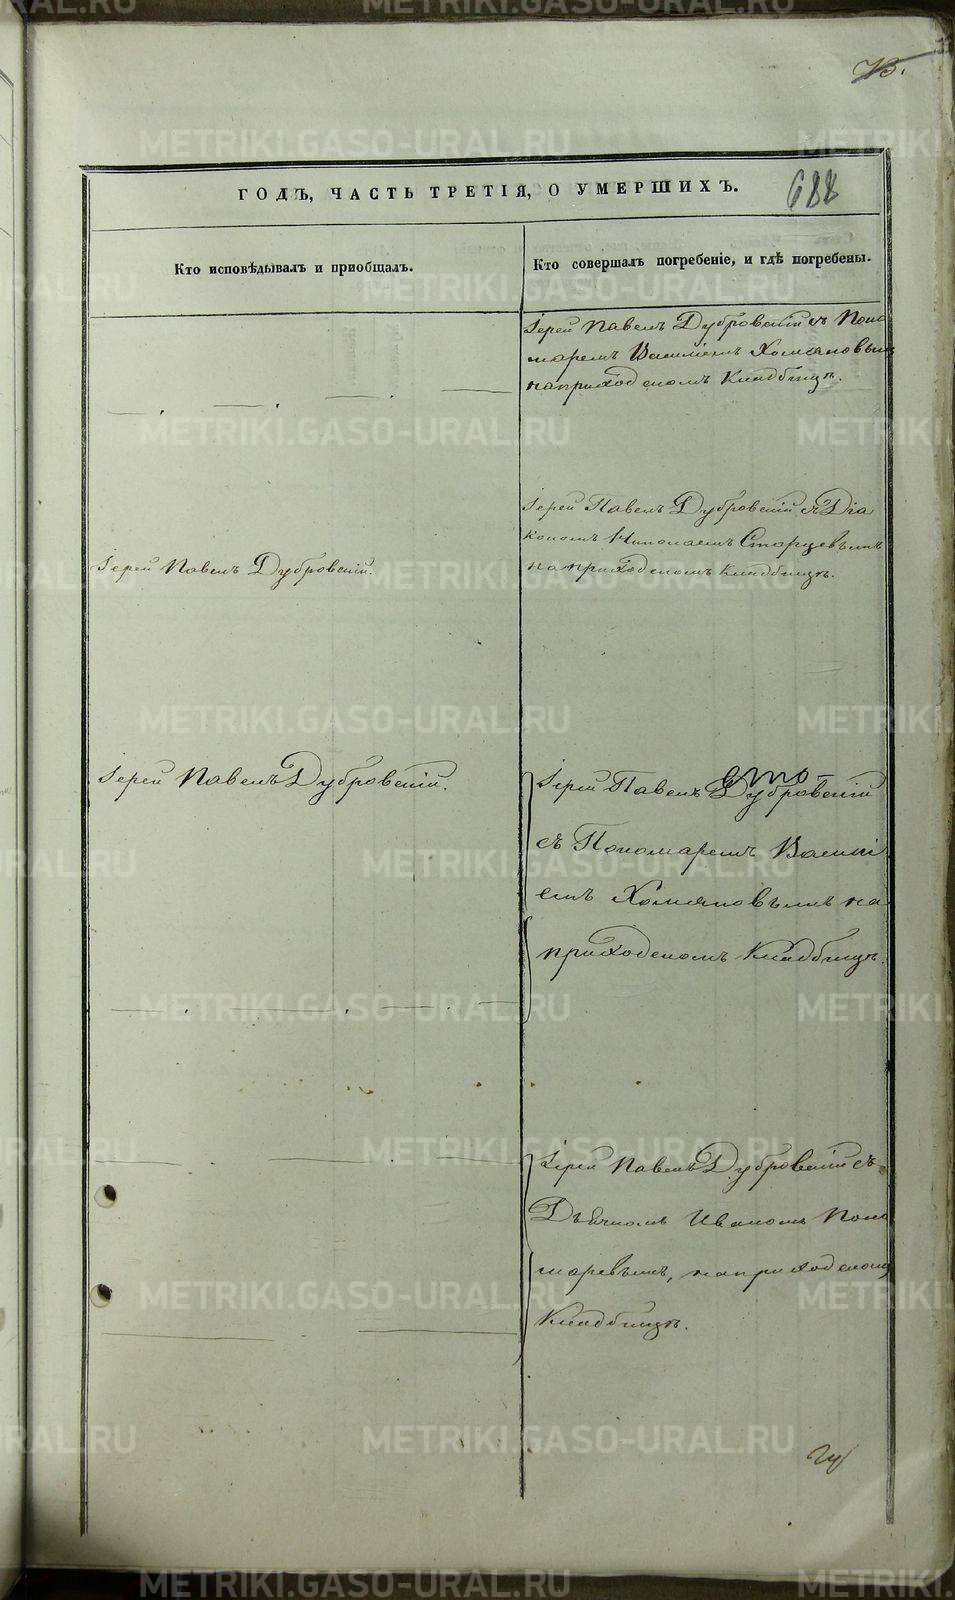 75.
ГОДЪ, ЧАСТЬ ТРЕТІЯ, О УМЕРШИХЪ.
688
Кто исповѣдывалъ и приобщалъ.
Кто совершалъ погребеніе, и гдѣ погребены.
Іерей Павелъ Дубровскій съ Поно
маремъ Василіемъ Хомяковымъ
на приходскомъ Кладбищѣ.
Іерей Павелъ Дубровскій.
Іерей Павелъ Дубровскій съ Діа
кономъ Николаемъ Старцевымъ
на приходскомъ Кладбищѣ.
Іерей Павелъ Дубровскій.
Іерей Павелъ Дубровскій
съ Пономаремъ Васил
емъ Хомяковымъ на
приходскомъ Кладбищѣ.
Іерей Павелъ Дубровскій съ
Дьячкомъ Иваномъ Поно
маревымъ, на приходскомъ
Кладбищѣ.
METRIKI.GASO-URAL.RU